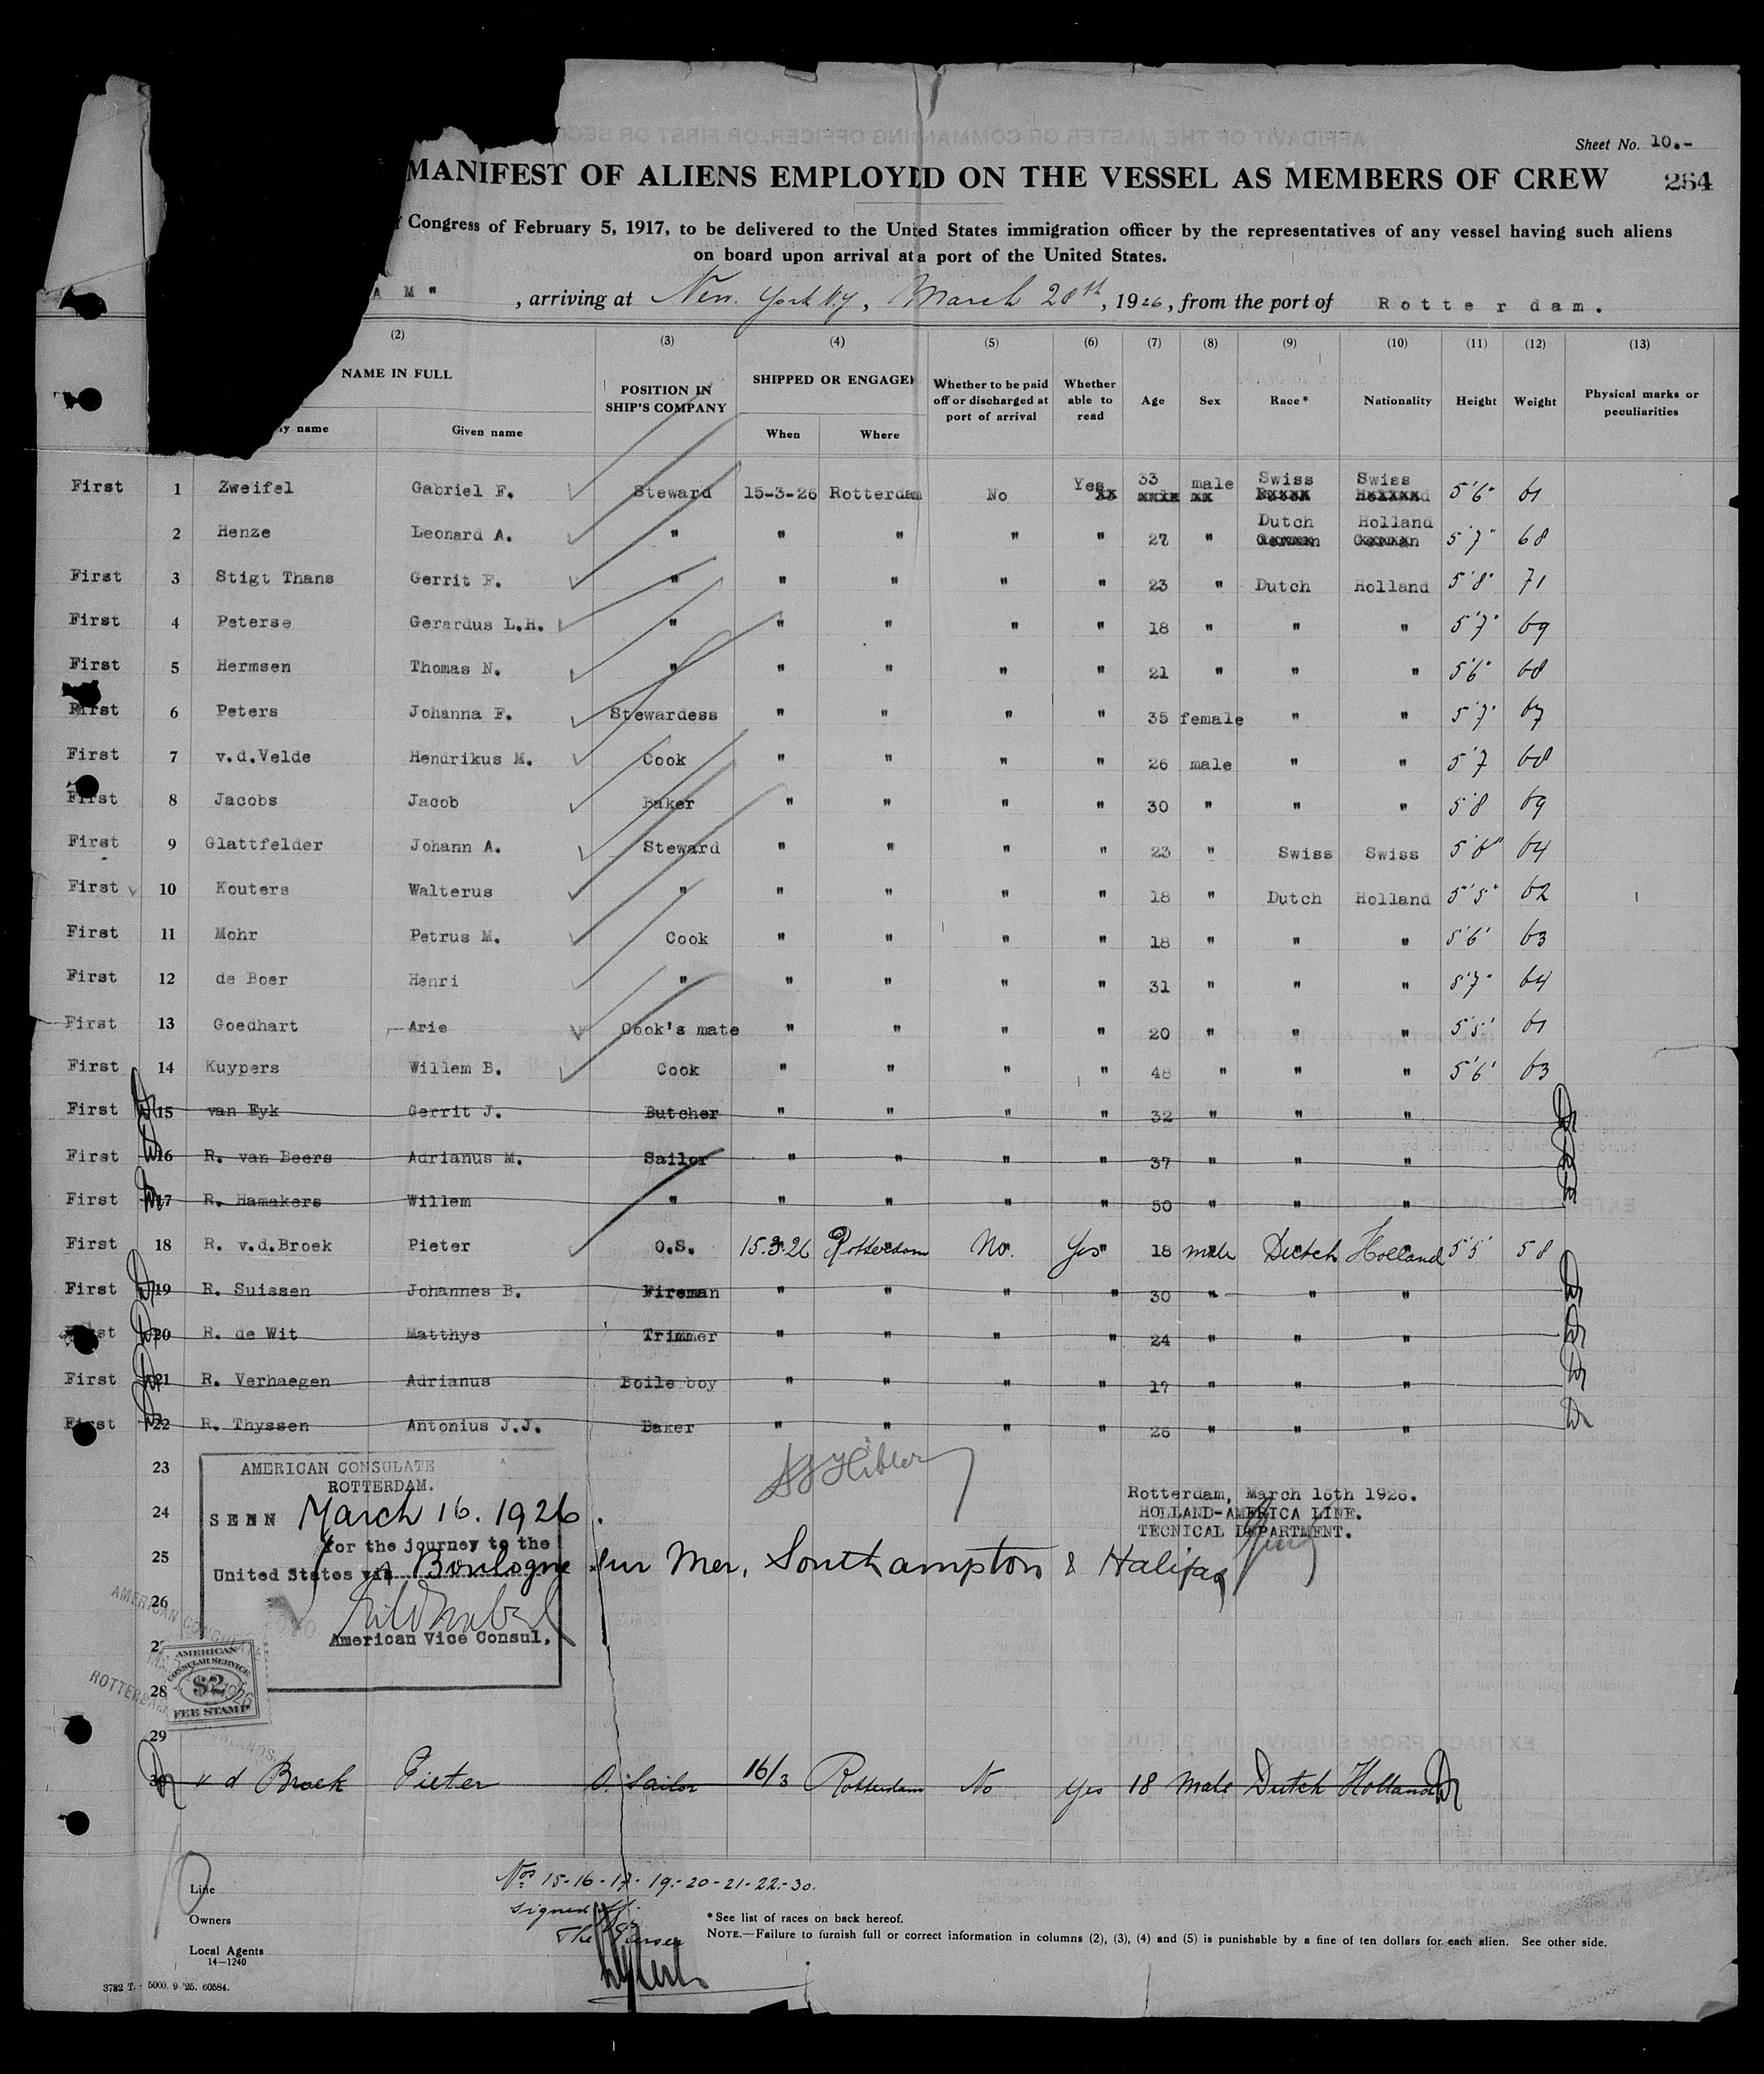 Sheet No. 10.-
MANIFEST OF ALIENS EMPLOYED ON THE VESSEL AS MEMBERS OF CREW 264
Congress of February 5, 1917, to be delivered to the United States immigration officer by the representatives of any vessel having such aliens
on board upon arrival at a port of the United States.
A M" , arriving at New York N.Y, March 28th, 1926, from the port of Rotterdam.
(2) (3) (4) (5) (6) (7) (8) (9) (10) (11) (12) (13)
NAME IN FULL POSITION IN SHIP'S COMPANY SHIPPED OR ENGAGED Whether to be paid off or discharged at port of arrival Whether able to read Age Sex Race* Nationality Height Weight Physical marks or peculiarities
ly name Given name When Where
First 1 Zweifel Gabriel F. Steward 15-3-26 Rotterdam No Yes 33 male Swiss Swiss 5'6" 61
2 Henze Leonard A. " " " " " 27 " Dutch Holland 5'7" 68
First 3 Stigt Thans Gerrit F. " " " " " 23 " Dutch Holland 5'8" 71
First 4 Peterse Gerardus L.H. " " " " " 18 " " " 5'7" 69
First 5 Hermsen Thomas N. " " " " " 21 " " " 5'6" 68
First 6 Peters Johanna F. Stewardess " " " " 35 female " " 5'7" 67
First 7 v.d.Velde Hendrikus M. Cook " " " " 26 male " " 5'7 68
First 8 Jacobs Jacob Baker " " " " 30 " " " 5'8 69
First 9 Glattfelder Johann A. Steward " " " " 23 " Swiss Swiss 5'6" 64
First 10 Kouters Walterus " " " " " 18 " Dutch Holland 5'5" 62
First 11 Mohr Petrus M. Cook " " " " 18 " " " 5'6' 63
First 12 de Boer Henri " " " " " 31 " " " 5'7" 64
First 13 Goedhart Arie Cook's mate " " " " 20 " " " 5'5' 61
First 14 Kuypers Willem B. Cook " " " " 48 " " " 5'6' 63
First 15 van Eyk Gerrit J. Butcher " " " " 32 " " "
First 16 R. van Beers Adrianus M. Sailor " " " " 37 " " "
First 17 R. Hamakers Willem " " " " " 50 " " "
First 18 R. v.d.Broek Pieter O.S. 15.3.26 Rotterdam No. Yes 18 male Dutch Holland 5'5' 58
First 19 R. Suissen Johannes B. Fireman " " " " 30 " " "
First 20 R. de Wit Matthys Trimmer " " " " 24 " " "
First 21 R. Verhaegen Adrianus Boile boy " " " " 17 " " "
First 22 R. Thyssen Antonius J.J. Baker " " " " 26 " " "
23
AMERICAN CONSULATE
ROTTERDAM.
Rotterdam, March 16th 1926.
HOLLAND-AMERICA LINE.
TECNICAL DEPARTMENT.
24 SEEN March 16. 1926.
for the journey to the
25 United States via Boulogne sur Mer, Southampton & Halifax
26
American Vice Consul.
AMERICAN CONSULAR SERVICE
$2
FEE STAMP
28
29
30 v d Broek Pieter O. Sailor 16/3 Rotterdam No Yes 18 Male Dutch Holland
Line
Nos 15-16-17-19-20-21-22-30.
signed
The Purser
Owners
*See list of races on back hereof.
NOTE.—Failure to furnish full or correct information in columns (2), (3), (4) and (5) is punishable by a fine of ten dollars for each alien. See other side.
Local Agents
14—1240
3782 T. - 5000. 9.'25. 60584.